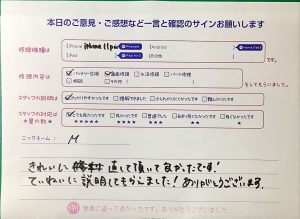 本日のご意見・ご感想など一言と確認のサインお願いします
修理機種は (iPhone iPhone 11pro) (Android )
(iPad ) (その他 ) です。
修理内容は バッテリー交換 画面修理 水没修理 パーツ修理
をしてもらいました。
スタッフの説明は わかりやすかったです 理解できました 少しわかりにくかったです 難しかったです
スタッフの対応は ★の数★ とても良かったです 良かったです 普通でした 良くなかったです
ニックネーム： M
きれいに 直して頂いて良かったです!
ていねいに説明してもらえました! ありがとうございます
携帯に直って良かったです。ありがとうございました